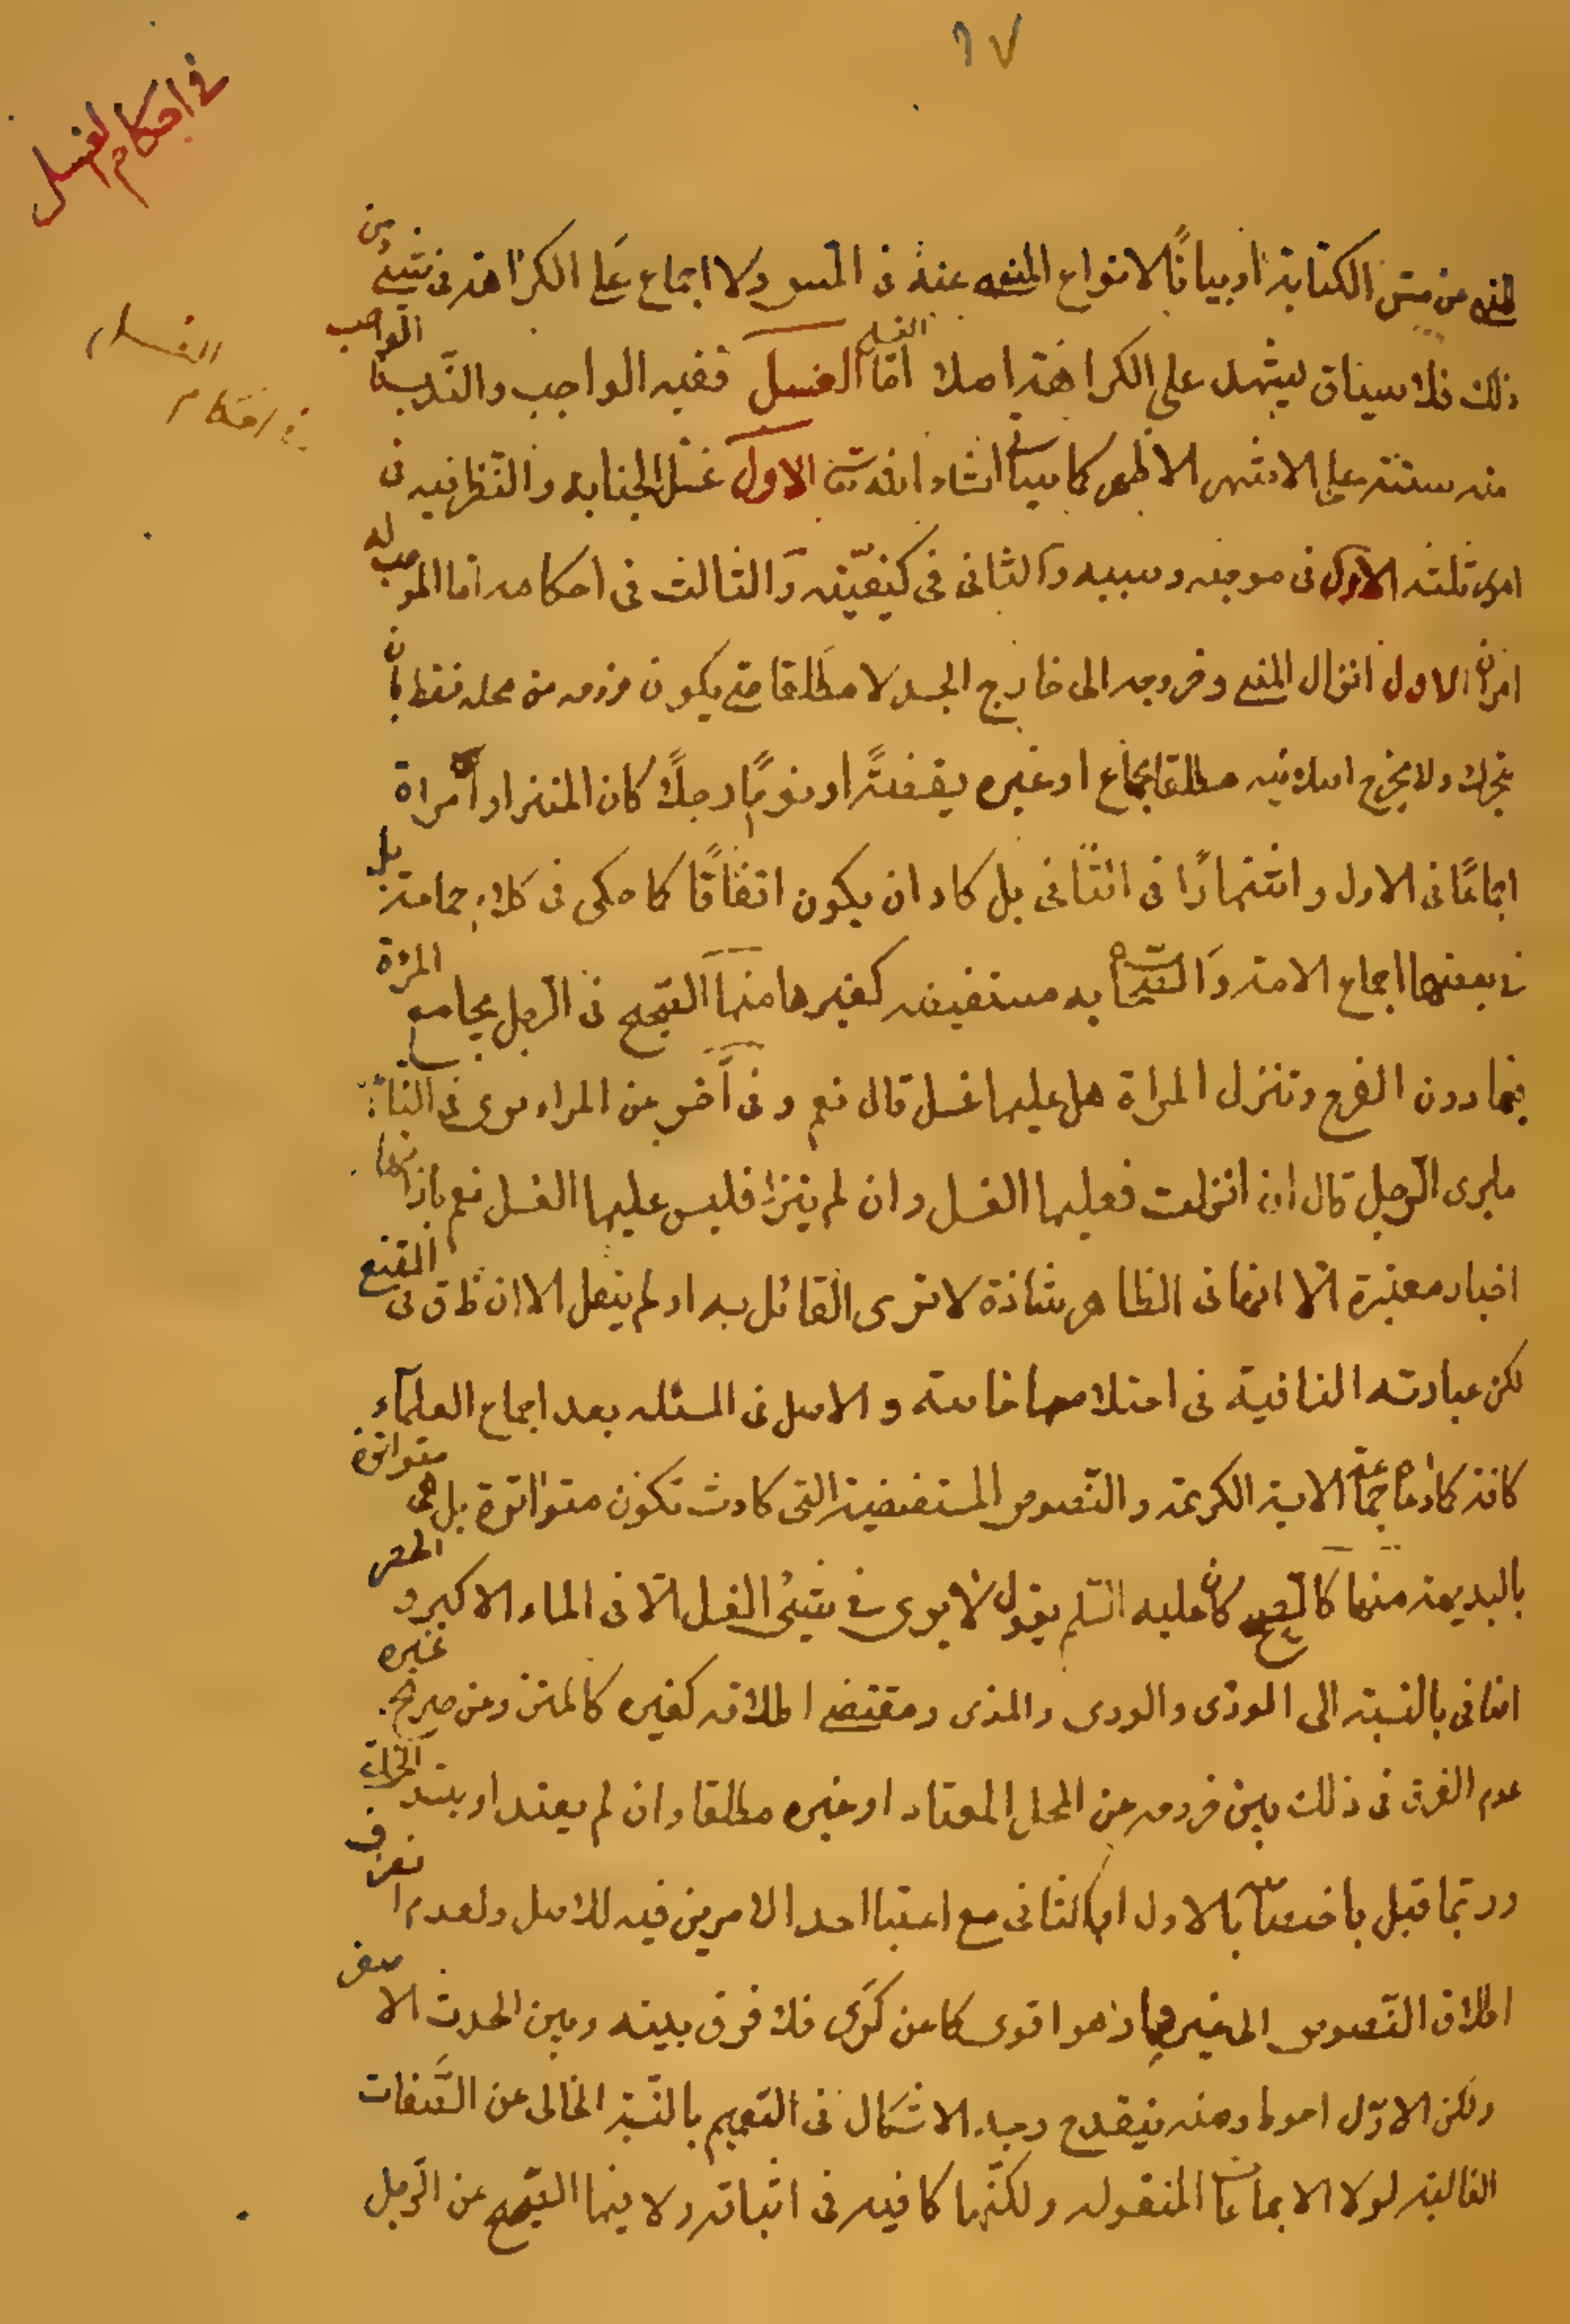 ١٧
في احكام الغسل
الغسل
في احكام
النهي عن مس الكتابة او بيانًا لانواع المنهي عنه في المس ولا اجماع على الكراهة في شيء من
ذلك فلا سياق يشهد على الكراهة اصلا اما الغسل ففيه الواجب والندب الواجب
منه ستة على الاشهر الاظهر كما سيأتي انشاء الله تعالى الاول غسل الجنابة والنظر فيه في
امور ثلثه الاول في موجبه وسببه والثاني في كيفيته والثالث في احكامه اما الموجب له
امران الاول انزال المني وخروجه الى خارج الجسد لا مطلقا حتى يكون خروجه من محله فقط بان
يتحرك ولا يخرج اصلا فيه مطلقا بجماع او غيره يقظةً او نومًا رجلًا كان المنزل او امراة
اجماعًا في الاول واشتهارًا في الثاني بل كاد ان يكون اتفاقًا كما حكى في كلام جماعة بل
في بعضها اجماع الامة والصحاح به مستفيضه كغيرها منها الصحيح في الرجل يجامع المرئة
فيما دون الفرج وتنزل المراة هل عليها غسل قال نعم وفي آخر عن المراه ترى في المنام
ما يرى الرجل قال ان انزلت فعليها الغسل وان لم ينزل فليس عليها الغسل نعم بازائها
اخبار معتبرة الا انها في الظاهر شاذة لا نرى القائل به او لم ينقل الا ان ظ ق في المقنع
لكن عبارته النافية في احتلامها خاصة والاصل في المسئله بعد اجماع العلمآء
كافة كما ادعاه جماعة الاية الكريمة والنصوص المستفيضة التي كادت تكون متواترة بل هي متواترة
بالبديهة منها كالصحيح كان عليه السلم يقول لا يرى في شيء الغسل الا في الماء الاكبر والحصر
اضافي بالنسبة الى الوذى والودى والمذى ومقتضى اطلاقه كغيره كالمتن وعن صريح غيره
عدم الفرق في ذلك بين خروجه عن المحل المعتاد او غيره مطلقا وان لم يعتد او يتسد الخلقي
وربما قيل باختصاصه بالاول او كالثاني مع اعتبار احد الامرين فيه للاصل ولعدم انصراف
اطلاق النصوص الى غيرهما وهو اقوى كما عن كرى فلا فرق بينه وبين الحدث الاصغر
ولكن الاول احوط ومنه ينقدح وجه الاشكال في التعميم بالنسبة الخالي عن الصفات
الغالبة لولا الاجماعات المنقوله ولكنها كافيه في اثباته ولا ينافيها الصحيح عن الرجل